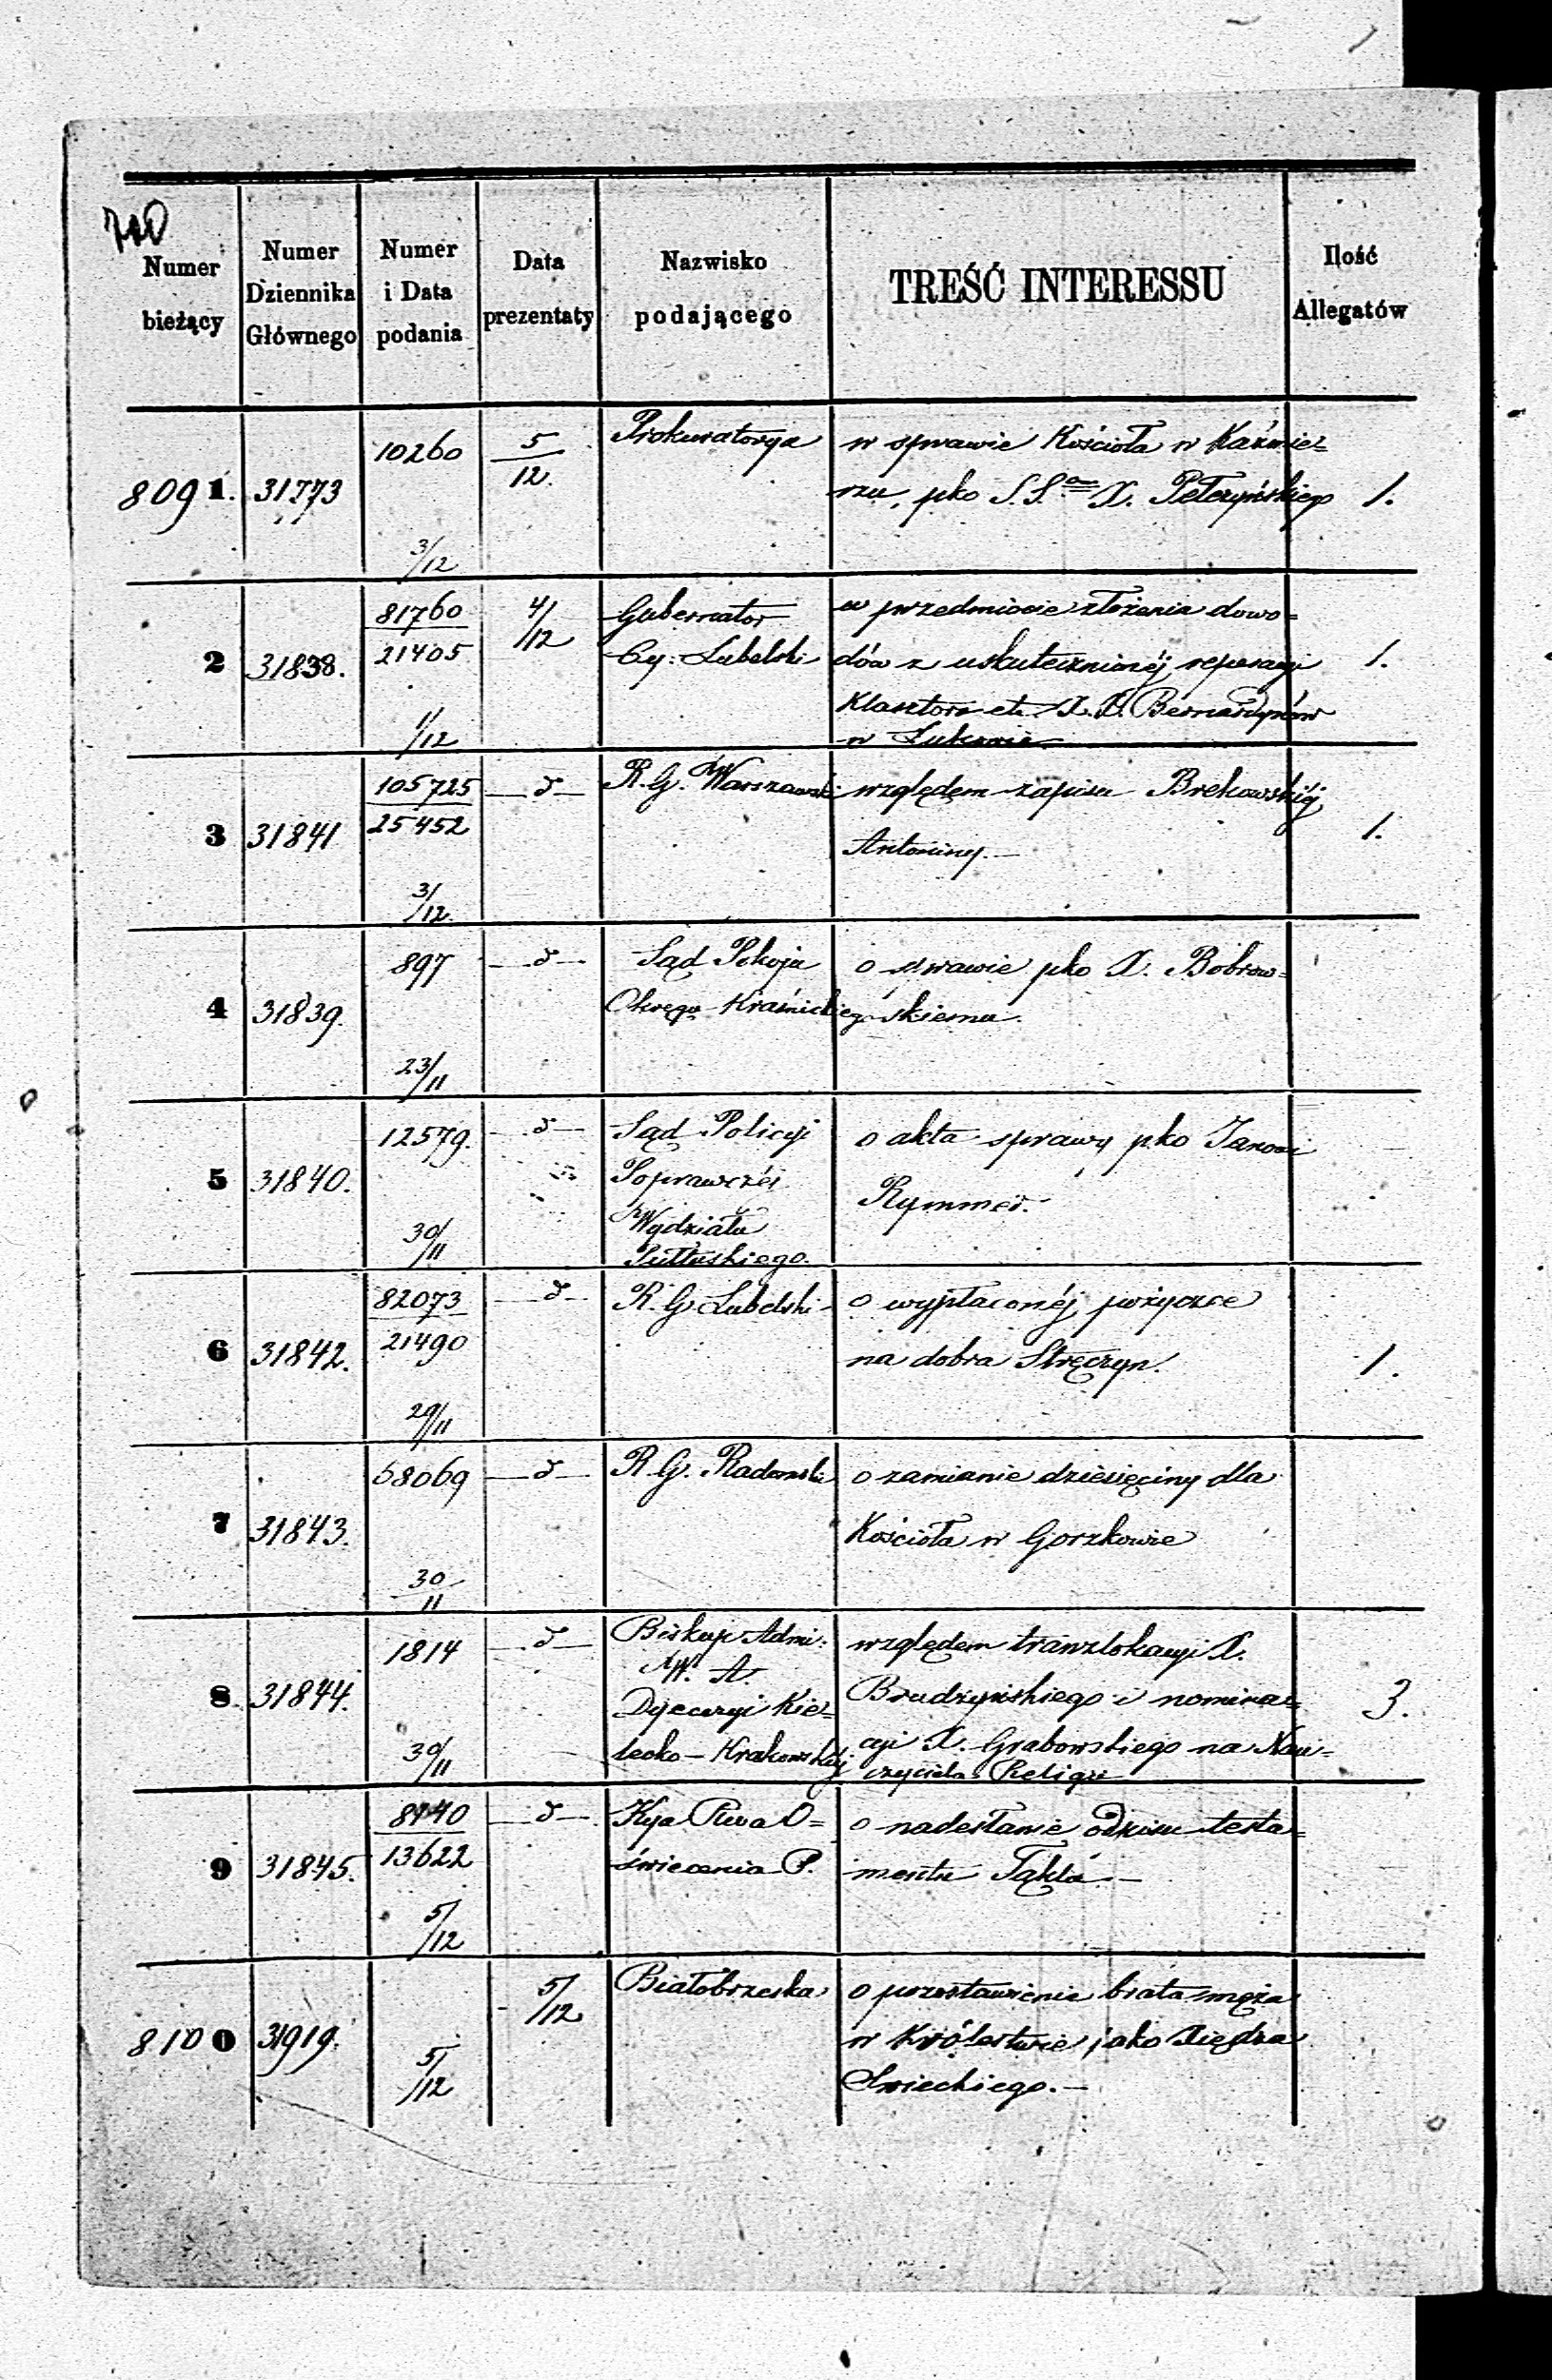 710
Numer bieżący | Numer Dziennika Głównego | Numer i Data podania | Data prezentaty | Nazwisko podającego | TREŚĆ INTERESSU | Ilość Allegatów
8091. | 31773 | 10260 3/12 | 5/12. | Prokuratorya | w sprawie Kościoła w Kaźmie=
rzu, pko S.S. X. Pełczyńskiego | 1.
2 | 31838. | 81760/21405 1/12 | 4/12 | Gubernator
Cy: Lubelski | w przedmiocie złożenia dowo=
dów z uskutecznionéj reperacyi
Klasztoru etc X.X. Bernardynów
w Łukowie | 1.
3 | 31841 | 105725/25452 3/12. | d | R. G. Warszawski | względem zapisu Brekowskiéj
Antoniny.— | 1.
4 | 31839. | 897 23/11 | d | Sąd Pokoju
Okręgu Kraśnickiego | o sprawie pko X. Bobrow=
skiemu.
5 | 31840. | 12579. 30/11 | d | Sąd Policyi
Poprawczéj
Wydziału
Pułtuskiego. | o akta sprawy pko Janowi
Rymmer.
6 | 31842. | 82073/21490 29/11 | d | R. G. Lubelski | o wypłaconéj pożyczce
na dobra Stręczyn. | 1.
7 | 31843. | 58069 30/11 | d | R. G. Radomski | o zamianie dziesięciny dla
Kościoła w Gorzkowie
8. | 31844. | 1814 30/11 | d | Biskup Admi:
A.
Dyecezyi Kie=
lecko–Krakowskiéj | względem tranzlokacyi X.
Brudzyńskiego i nomina=
cyi X. Grabowskiego na Nau=
czyciela Religii | 3.
9 | 31845. | 8940/13622 5/12 | d | Kya Rwa O=
świecenia P. | o nadesłanie odpisu testa=
mentu Tąkla.—
8100 | 31919. | 5/12 | 5/12 | Białobrzeska | o pozostawienie brata męża
w Królestwie jako Xiędza
Swieckiego.—